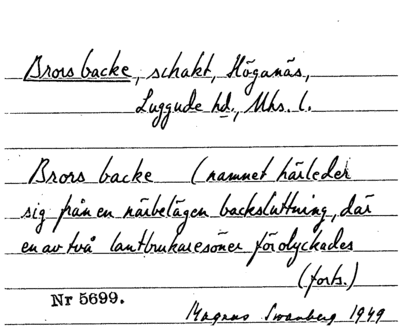 Brors backe, schakt, Höganäs,
Luggude hd., Mhs. l.
Brors backe (namnet härleder
sig från en närbelägen backsluttning, där
en av två lantbrukaresöner förolyckades
(forts.)
Nr 5699.
Magnus Swanberg 1949